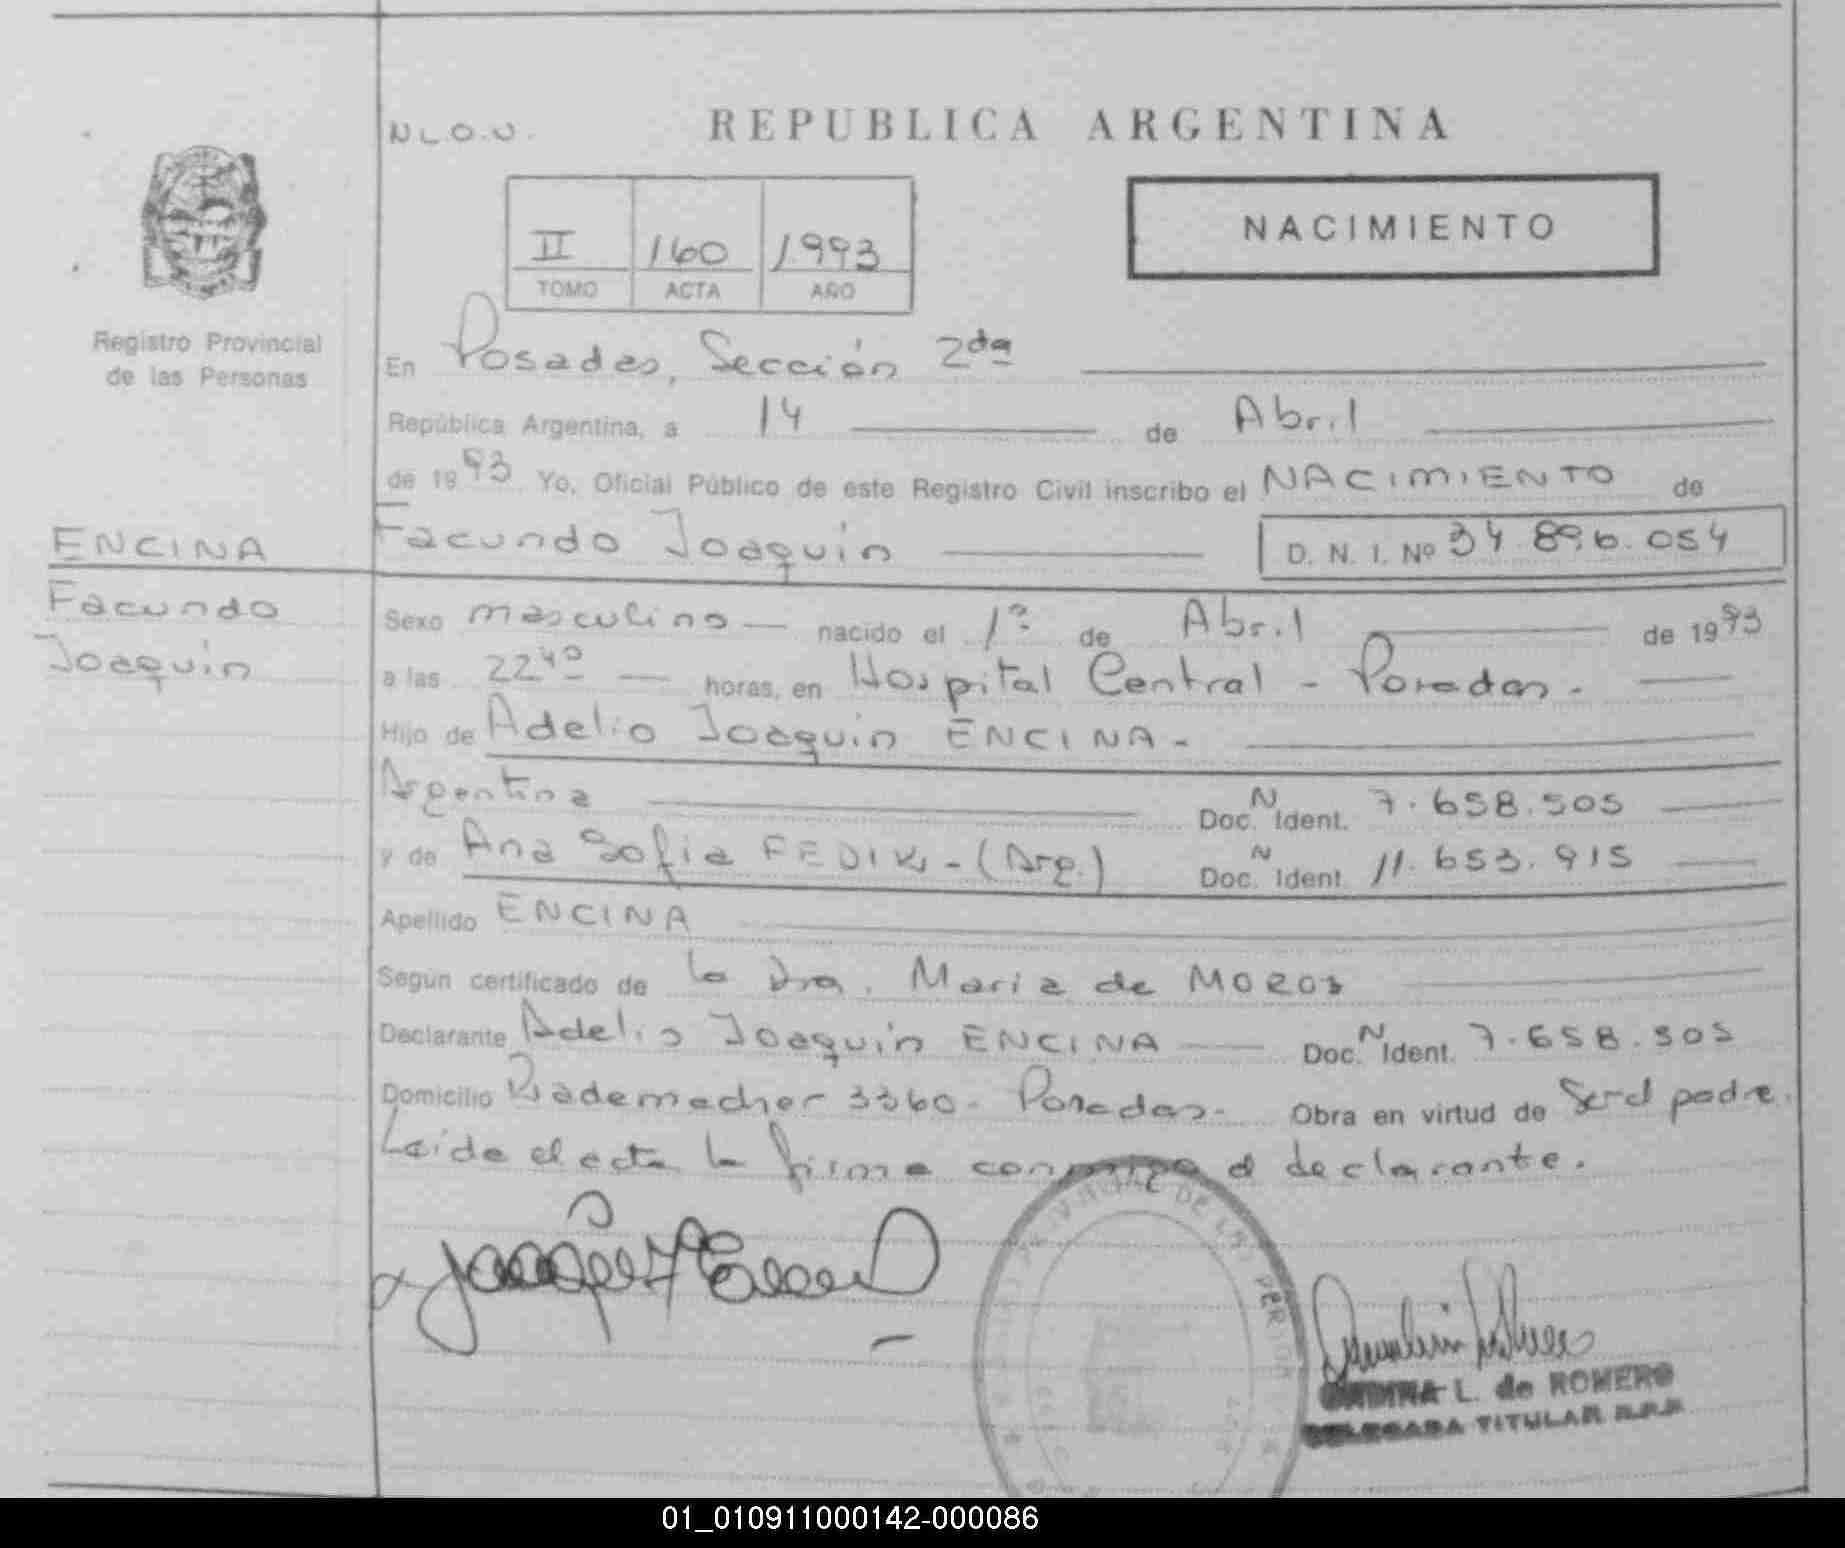 N.L.O.U.
REPUBLICA ARGENTINA
II 160 1993
TOMO ACTA AÑO
NACIMIENTO
Registro Provincial
de las Personas
En Posadas, Sección 2da
República Argentina, a 14 de Abril
de 1993 Yo, Oficial Público de este Registro Civil inscribo el NACIMIENTO de
ENCINA
Facundo
Joaquin
Facundo Joaquin D. N. I. Nº 34.896.054
Sexo masculino nacido el 1º de Abril de 1993
a las 22 40 horas, en Hospital Central - Posadas.
Hijo de Adelio Joaquin ENCINA -
Argentina Doc. N Ident. 7.658.505
y de Ana Sofia FEDIW - (Arg.) Doc. N Ident. 11.653.915
Apellido ENCINA
Según certificado de la Dra. Maria de
Declarante Adelio Joaquin ENCINA Doc. N Ident. 7.658.505
Domicilio Rademacher 3360 - Posadas - Obra en virtud de Ser el padre.
Leida el acta la firma conmigo el declarante.
PROVINCIAL DE LAS PERSONAS
L. de ROMERO
DELEGADA TITULAR R.P.P.
01_010911000142-000086